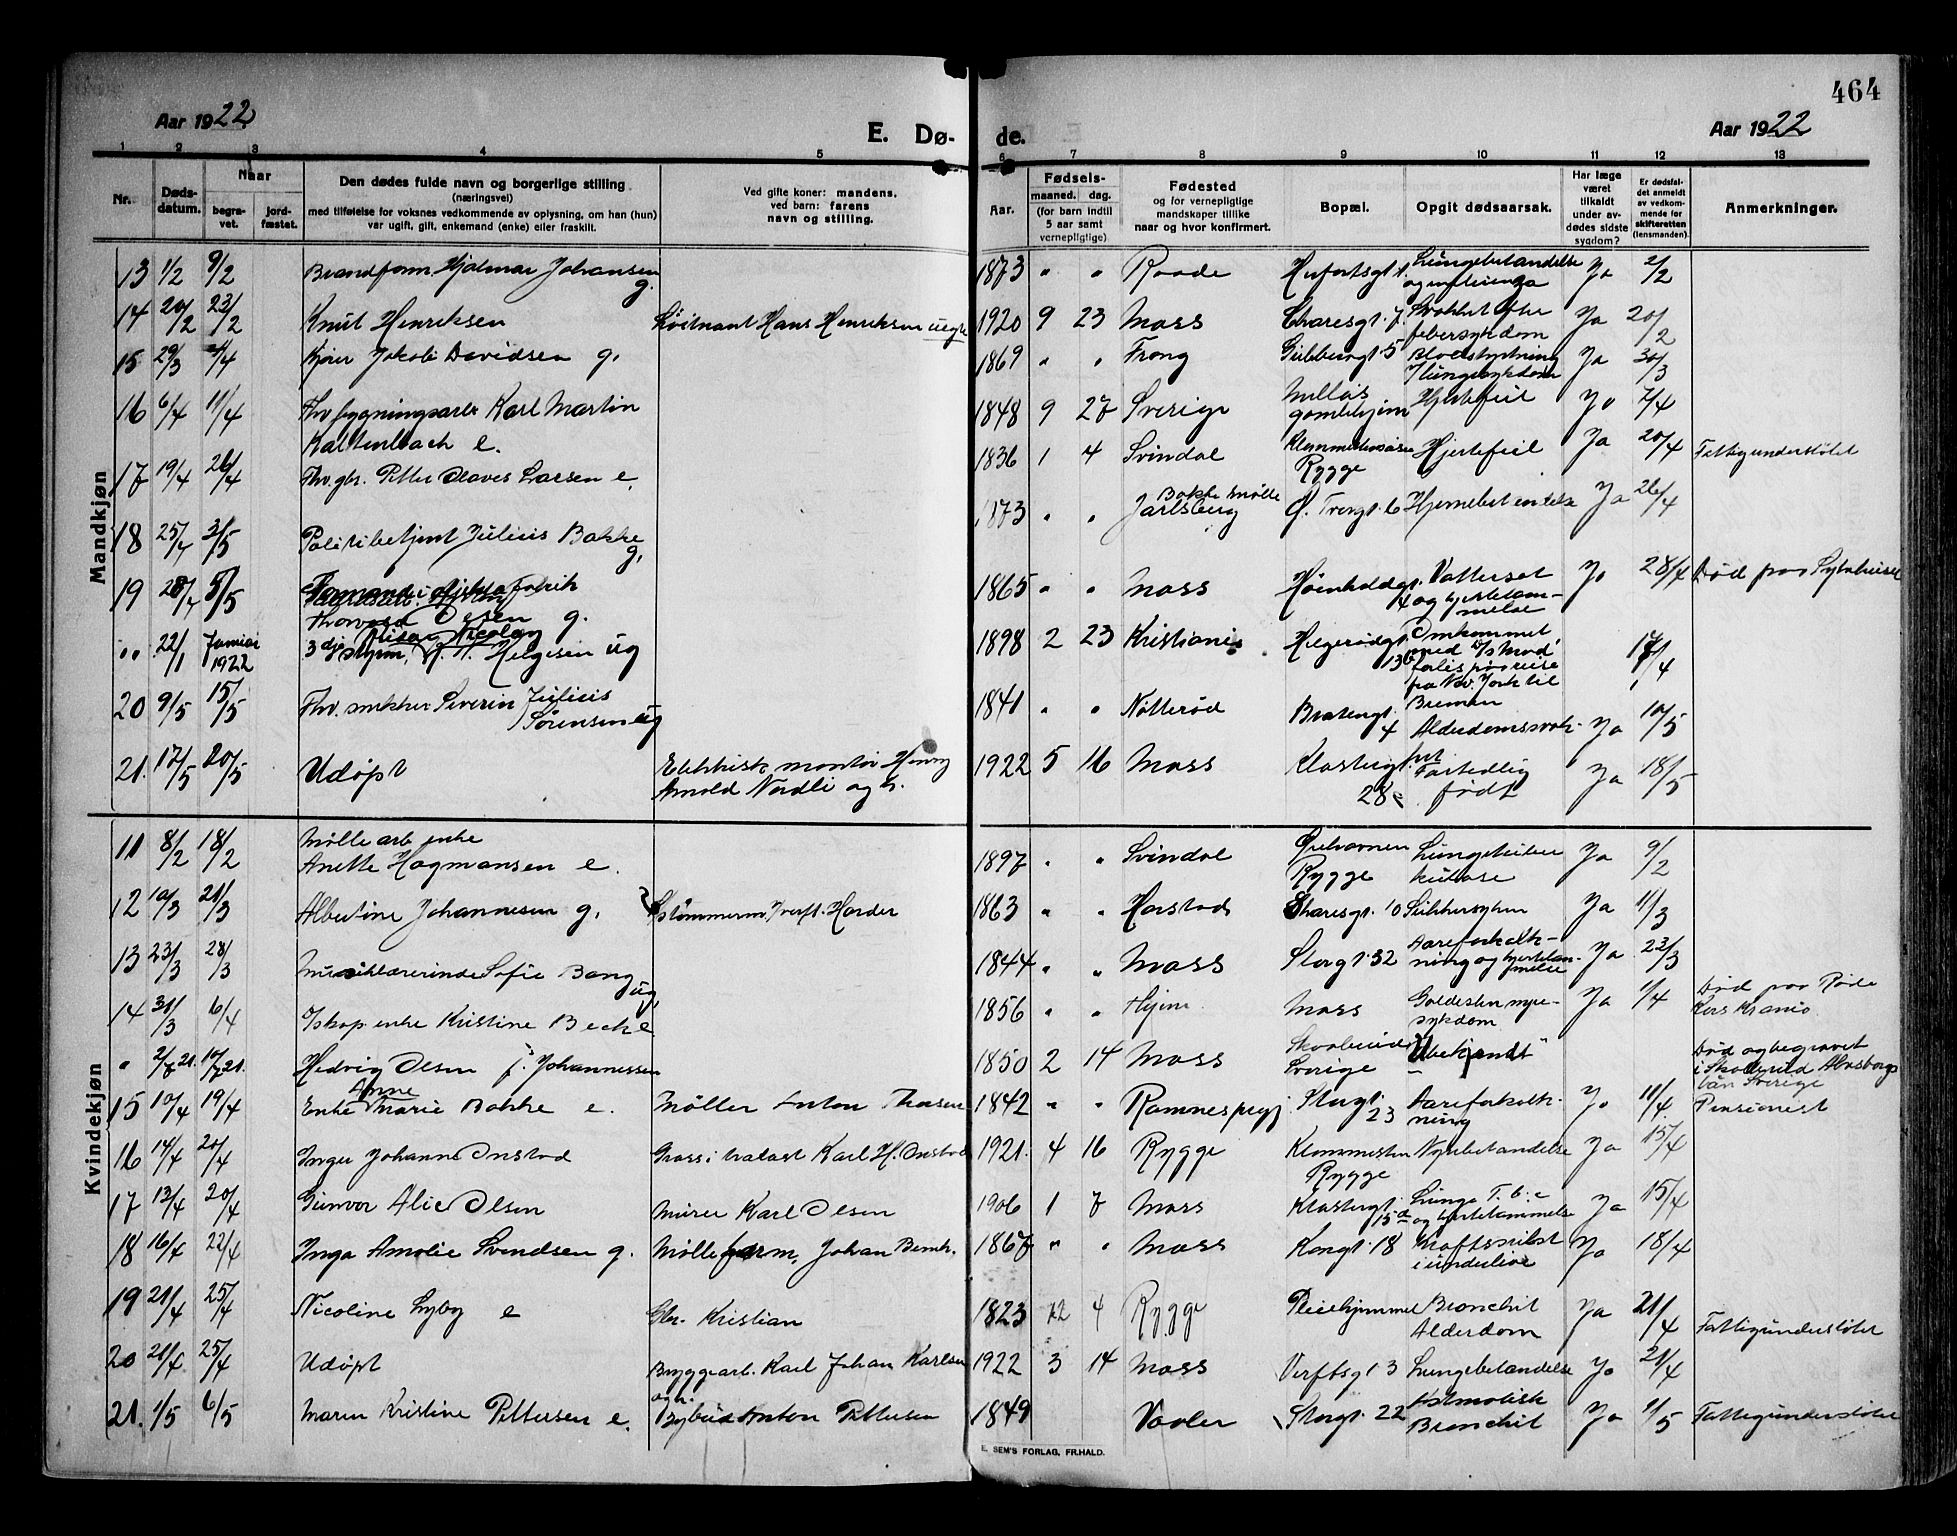 464
Aar 1922.
E. Dø- de.
Aar 1922
1 2 3 4 5 6 7 8 9 10 11 12 13
Nr.
Døds-
datum.
Naar
begra-
vet.
jord-
fæstet.
Den dødes fulde navn og borgerlige stilling
(næringsvei)
med tilføielse for voksnes vedkommende av oplysning, om han (hun)
var ugift, gift, enkemand (enke) eller fraskilt.
Ved gifte koner: mandens.
ved barn: farens
navn og stilling.
Aar.
Fødsels-
maaned. dag.
(for barn indtil
5 aar samt
vernepligtige)
Fødested
og for vernepligtige
mandskaper tillike
naar og hvor konfirmert.
Bopæl.
Opgit dødsaarsak.
Har læge
været
tilkaldt
under av-
dødes sidste
sygdom?
Er dødsfal-
det anmeldt
av vedkom-
mende for
skifteretten
(lensmanden).
Anmerkninger.
Mandkjøn
13 1/2 9/2 Brandform. Hjalmar Johansen g. 1873 " " Raade Lungebetændelse Ja 2/2
14 20/2 23/2 Knut Henriksen Løitnant Hans Henriksen uegte 1920 9 23 Moss Ja 20/2
15 29/3 4/4 Kjører Jakob Davidsen g. 1869 " " Blodstyrtning Ja 30/3
16 6/4 11/4 Fhv. bygningsarb. Karl Martin
Kaltenbach e. 1848 9 27 Sverige gamlehjem Hjertefeil Ja 7/4
17 19/4 26/4 Fhv. gbr. Petter Olaves Larsen e. 1836 1 4 Svindal Rygge Hjertefeil Ja 20/4 Fattigunderstøttet
18 25/4 3/5 Politibetjent Julius Bakke g. 1873 " " Bakke mølle
Jarlsberg Ø. Torvgt. 6 Hjernebetændelse Ja 26/4
19 28/4 5/5 Formand i Fabrik
Thorvald Olsen g. 1865 " " Moss Vattersot
og hjertelam-
melse Ja 28/4 Død paa Sykehuset
" 22/1 Januar
1922 3dje styrm. Helgesen ug 1898 2 23 Kristiania Omkommet
med D/s Mod
forlis paa reise
fra New York til
Bremen 17/4
20 9/5 15/5 Fhv. snekker Severin Julius
Sørensen ug 1841 " " Nøtterød Bratengt. 4 Alderdomssvak-
het Ja 10/5
21. 17/5 20/5 Udøpt Elektrisk montør Henry
Arnold Nordli og h. 1922 5 16 Moss Klostergt.
28 c. Fortidlig
født Ja 18/5
Kvindekjøn
11 8/2 18/2 Møllearb. enke
Anette Hagmansen e. 1897 " " Svindal Rygge Lungetuber-
kulose Ja 9/2
12 10/3 21/3 Albertine Johannesen g. Harder 1863 " " Harstad 10 Sukkersyken Ja 11/3
13 23/3 28/3 Musiklærerinde Sofie Bang ug 1844 " " Moss Storgt. 32 Aareforkalk-
ning og hjertelam-
melse Ja 23/3
14 31/3 6/4 Kristine Beck e 1856 " " Moss Galdesten nyre-
sykdom Ja 1/4 Død paa Røde
Kors Krania
" 2/7 21. 10/7 21. Hedvig Olsen f. Johannessen 1850 2 14 Moss Sverige Ubekjendt Død og begravet
i Skållerud Älvsborgs
län Sverige
15 10/4 19/4 Enke Anne Marie Bakke e. Møller Anton 1842 " " Ramnes pregj. Storgt. 23 Aareforkalk-
ning Ja 11/4. Pensionist
16 14/4 20/4 Inger Johanne Onstad Karl H. Onstad 1921. 4 16 Rygge Rygge Nyrebetændelse Ja 15/4
17 13/4 20/4 Gunvor Alice Olsen Murer Karl Olsen 1906 1 7 Moss Klostergt.
15 d Lunge T. b. c
og hjertelammelse Ja 15/4
18 16/4 22/4 Inga Amalie Svendsen g. Mølleform. Johan Bernh. 1867 " " Moss Kongt. 18 Kræftsvulst
i underlivet Ja 18/4
19 21/4 25/4 Nicoline Lyby e Gbr. Kristian 1823 12 4 Rygge Pleiehjemmet Bronchit
Alderdom Ja 21/4 Fattigunderstøttet
20 21/4 25/4 Udøpt Bryggearb. Karl Johan Karlsen
og h. 1922 3 14 Moss Verftsgt 3 Lungebetændelse Ja 21/4
21. 1/5 6/5 Maren Kristine Pettersen e. Bybud Anton Pettersen 1849 Vaaler Storgt. 22 Astmatisk
Bronchit Ja 1/5 Fattigunderstøttet
E. SEM'S FORLAG, FR.HALD.